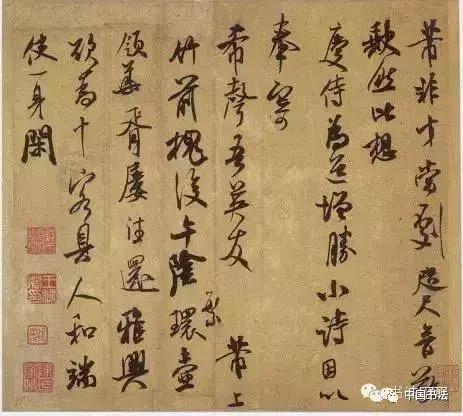 芾非才當劇咫尺音敬
缺然此想
慶侍為道增勝小詩因以
奉寄
希聲吾英友 芾上
繁
竹前槐後午陰環壺
領華胥屢往還雅興
欲為十客具人和端
使一身閑
中国书法